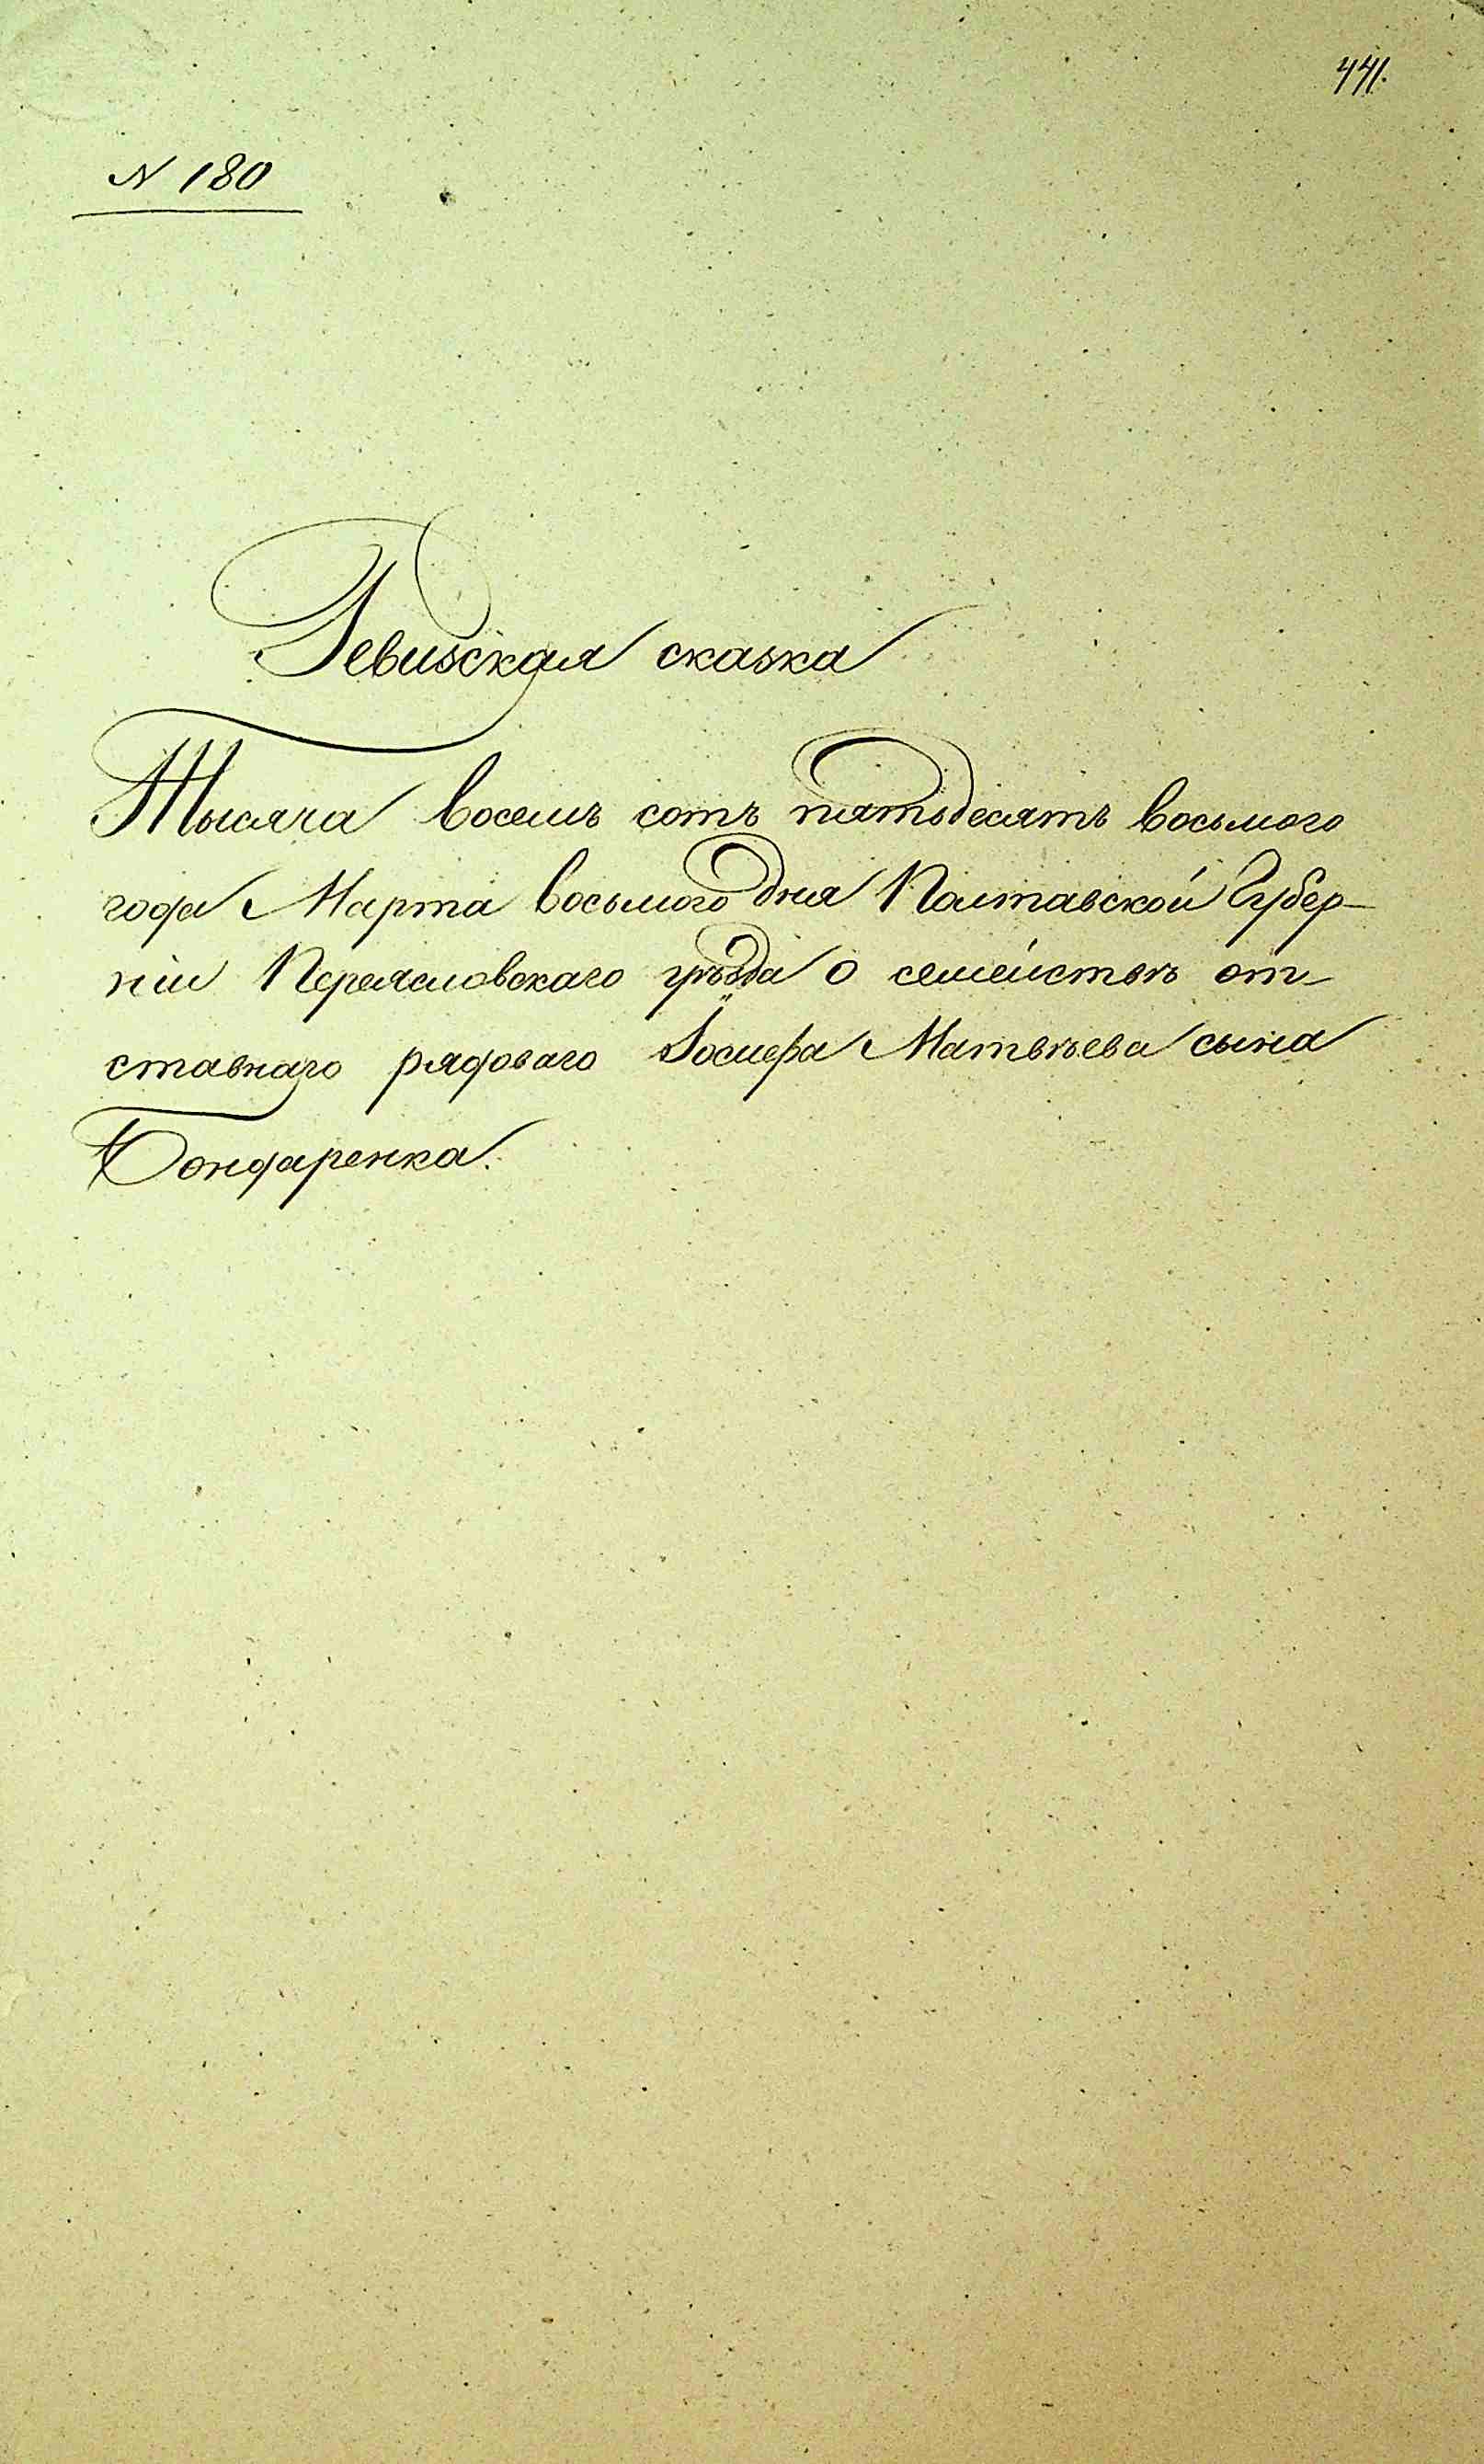 441.
N 180
Ревизская сказка
Тысяча восемъ сотъ пятьдесятъ восьмого
года Марта восьмого дня Полтавской Губер-
ніи Переясловскаго уѣзда о семействѣ от-
ставнаго рядоваго Іосифа Матвѣева сына
Бондаренка.